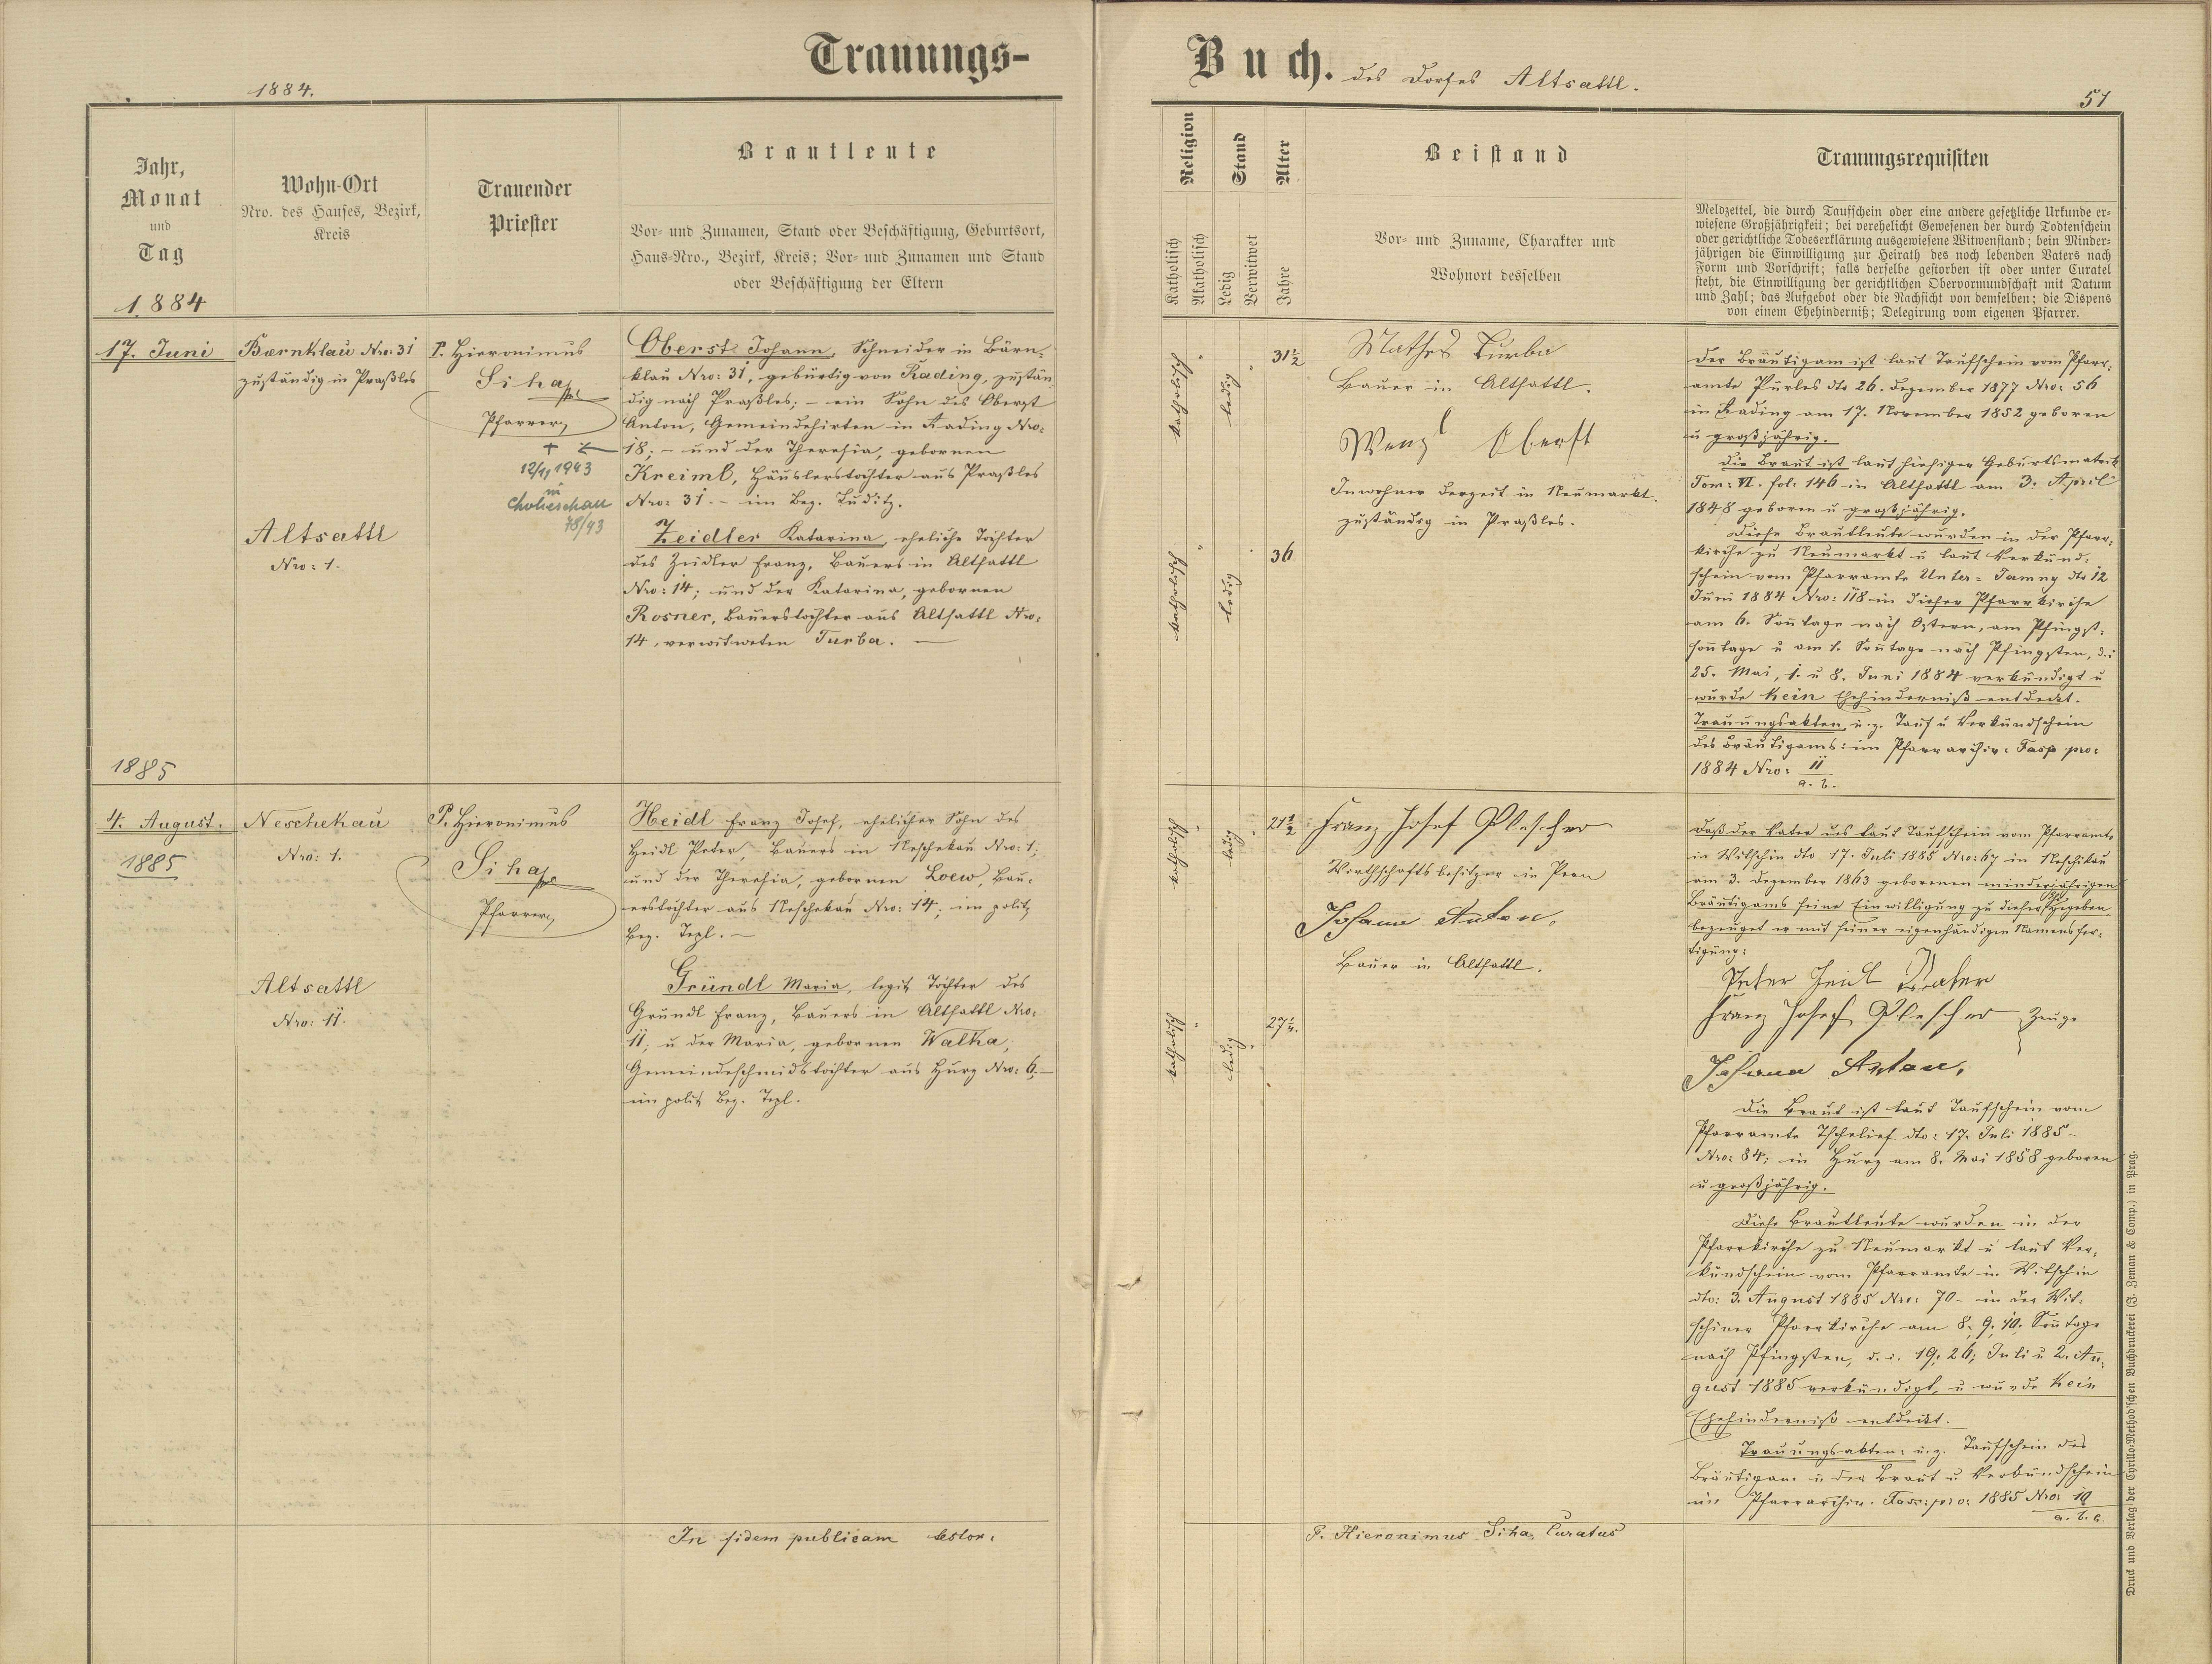 Trauungs-
Buch. des Dorfes Altsattl.
1884.
51
Jahr,
Monat
und
Tag
1884
Wohn-Ort
Nro. des Hauses, Bezirk,
Kreis
Trauender
Priester
Brautleute
Vor- und Zunamen, Stand oder Beschäftigung, Geburtsort,
Haus-Nro., Bezirk, Kreis; Vor- und Zunamen und Stand
oder Beschäftigung der Eltern
Religion
Katholisch
Akatholisch
Stand
Ledig
Verwitwet
Alter
Jahre
Beistand
Vor- und Zuname, Charakter und
Wohnort desselben
Trauungsrequisiten
Meldzettel, die durch Taufschein oder eine andere gesetzliche Urkunde er-
wiesene Großjährigkeit; bei verehelicht Gewesenen der durch Todtenschein
oder gerichtliche Todeserklärung ausgewiesene Witwenstand; bein Minder-
jährigen die Einwilligung zur Heirath des noch lebenden Vaters nach
Form und Vorschrift; falls derselbe gestorben ist oder unter Curatel
steht, die Einwilligung der gerichtlichen Obervormundschaft mit Datum
und Zahl; das Aufgebot oder die Nachsicht von demselben; die Dispens
von einem Ehehinderniß; Delegirung vom eigenen Pfarrer.
17. Juni
Bærnklau Nro: 31
zuständig in Praßles
Altsattl
Nro: 1.
P. Hieronimus
Siha
Pfarrer
12/11 1943
in
Chotieschau
78/43
Oberst Johann, Schneider in Bärn-
klau Nro: 31, gebürtig von Rading, zustän
dig nach Praßles; - ein Sohn des Oberst
Anton, Gemeindehirten in Rading Nro:
18; - und der Theresia, gebornen
Kreiml, Häuslerstochter aus Praßles
Nro: 31. - im Bez. Luditz.
Zeidler Katarina, eheliche Tochter
des Zeidler Franz, Bauers in Altsattl
Nro: 14; und der Katarina, gebornen
Rosner, Bauerstochter aus Altsattl Nro:
14, verwitweten Turba. —
katholisch
ledig
31½
katholisch
ledig
36
Mathes Turba
Bauer in Altsattl.
Wenzl Oberst
Inwohner derzeit in Neumarkt.
zuständig in Praßles.
Der Bräutigam ist laut Taufschein vom Pfarr-
amte Purles dto 26. Dezember 1877 Nro: 56
in Rading am 17. November 1852 geboren
u großjährig.
Die Braut ist laut hiesiger Geburtsmatrik
Tom: VI. fol: 146 in Altsattl am 3. April
1848 geboren u großjährig.
Diese Brautleute wurden in der Pfarr-
kirche zu Neumarkt u laut Verkünd-
schein vom Pfarramte Unter-Jamny dto 12
Juni 1884 Nro: 118 in dieser Pfarrkirche
am 6. Soñtage nach Ostern, am Pfingst-
soñtage u am 1. Soñtage nach Pfingsten, d. i
25. Mai, 1. u 8. Juni 1884 verkündigt u
wurde kein Ehehinderniß entdeckt.
Trauungsakten, u. z. Tauf u Verkündschein
des Bräutigams: im Pfarrarchiv: Fasz pro:
1884 Nro: 11
a. b.
1885
4. August.
1885
Neschekau
Nro: 1.
Altsattl
Nro: 11.
P. Hieronimus
Siha
Pfarrer
Heidl Franz Josef, ehelicher Sohn des
Heidl Peter, Bauers in Neschekau Nro: 1;
und der Theresia, gebornen Loew, Bau-
erstochter aus Neschekau Nro: 14; im polit
Bez. Tepl. —
Gründl Maria, legit Tochter des
Gründl Franz, Bauers in Altsattl Nro:
11; u der Maria, gebornen Walka,
Gemeindeschmidstochter aus Hurz Nro: 6. —
im polit Bez. Tepl.
katholisch
ledig
21½
katholisch
ledig
27
Franz Josef Plescher
Wirthschaftsbesitzer in Pern
Johann Anton,
Bauer in Altsattl.
Daß der Vater des laut Taufschein vom Pfarramte
in Witschin dto 17. Juli 1885 Nro: 67 in Neschikau
am 3. Dezember 1863 geborenen minderjährigen
Bräutigams seine Einwilligung zu dieser Ehe gegeben,
bezeuget er mit seiner eigenhändigen Namensfer-
tigung:
Peter Heidl Vater
Franz Josef Plescher Zeuge
Johann Anton,
Die Braut ist laut Taufschein vom
Pfarramte Tschelief dto: 17. Juli 1885 -
Nro: 84; in Hurz am 8. Mai 1858 geboren
u großjährig.
Diese Brautleute wurden in der
Pfarrkirche zu Neumarkt u laut Ver-
kündschein vom Pfarramte in Witschin
dto: 3. August 1885 Nro: 70 - in der Wit-
schiner Pfarrkirche am 8. 9. 10. Soñtage
nach Pfingsten, d. i. 19. 26. Juli u 2. Au-
gust 1885 verkündigt, u wurde kein
Ehehinderniß entdeckt.
Trauungsakten: u. z. Taufschein des
Bräutigam u der Braut u Verkündschein
im Pfarrarchiv. Fasz: pro: 1885 Nro: 10
a. b. c.
In fidem publicam testor.
P. Hieronimus Siha, Curatus
Druck und Verlag der Cyrillo-Method'schen Buchdruckerei (J. Zeman & Comp.) in Prag.